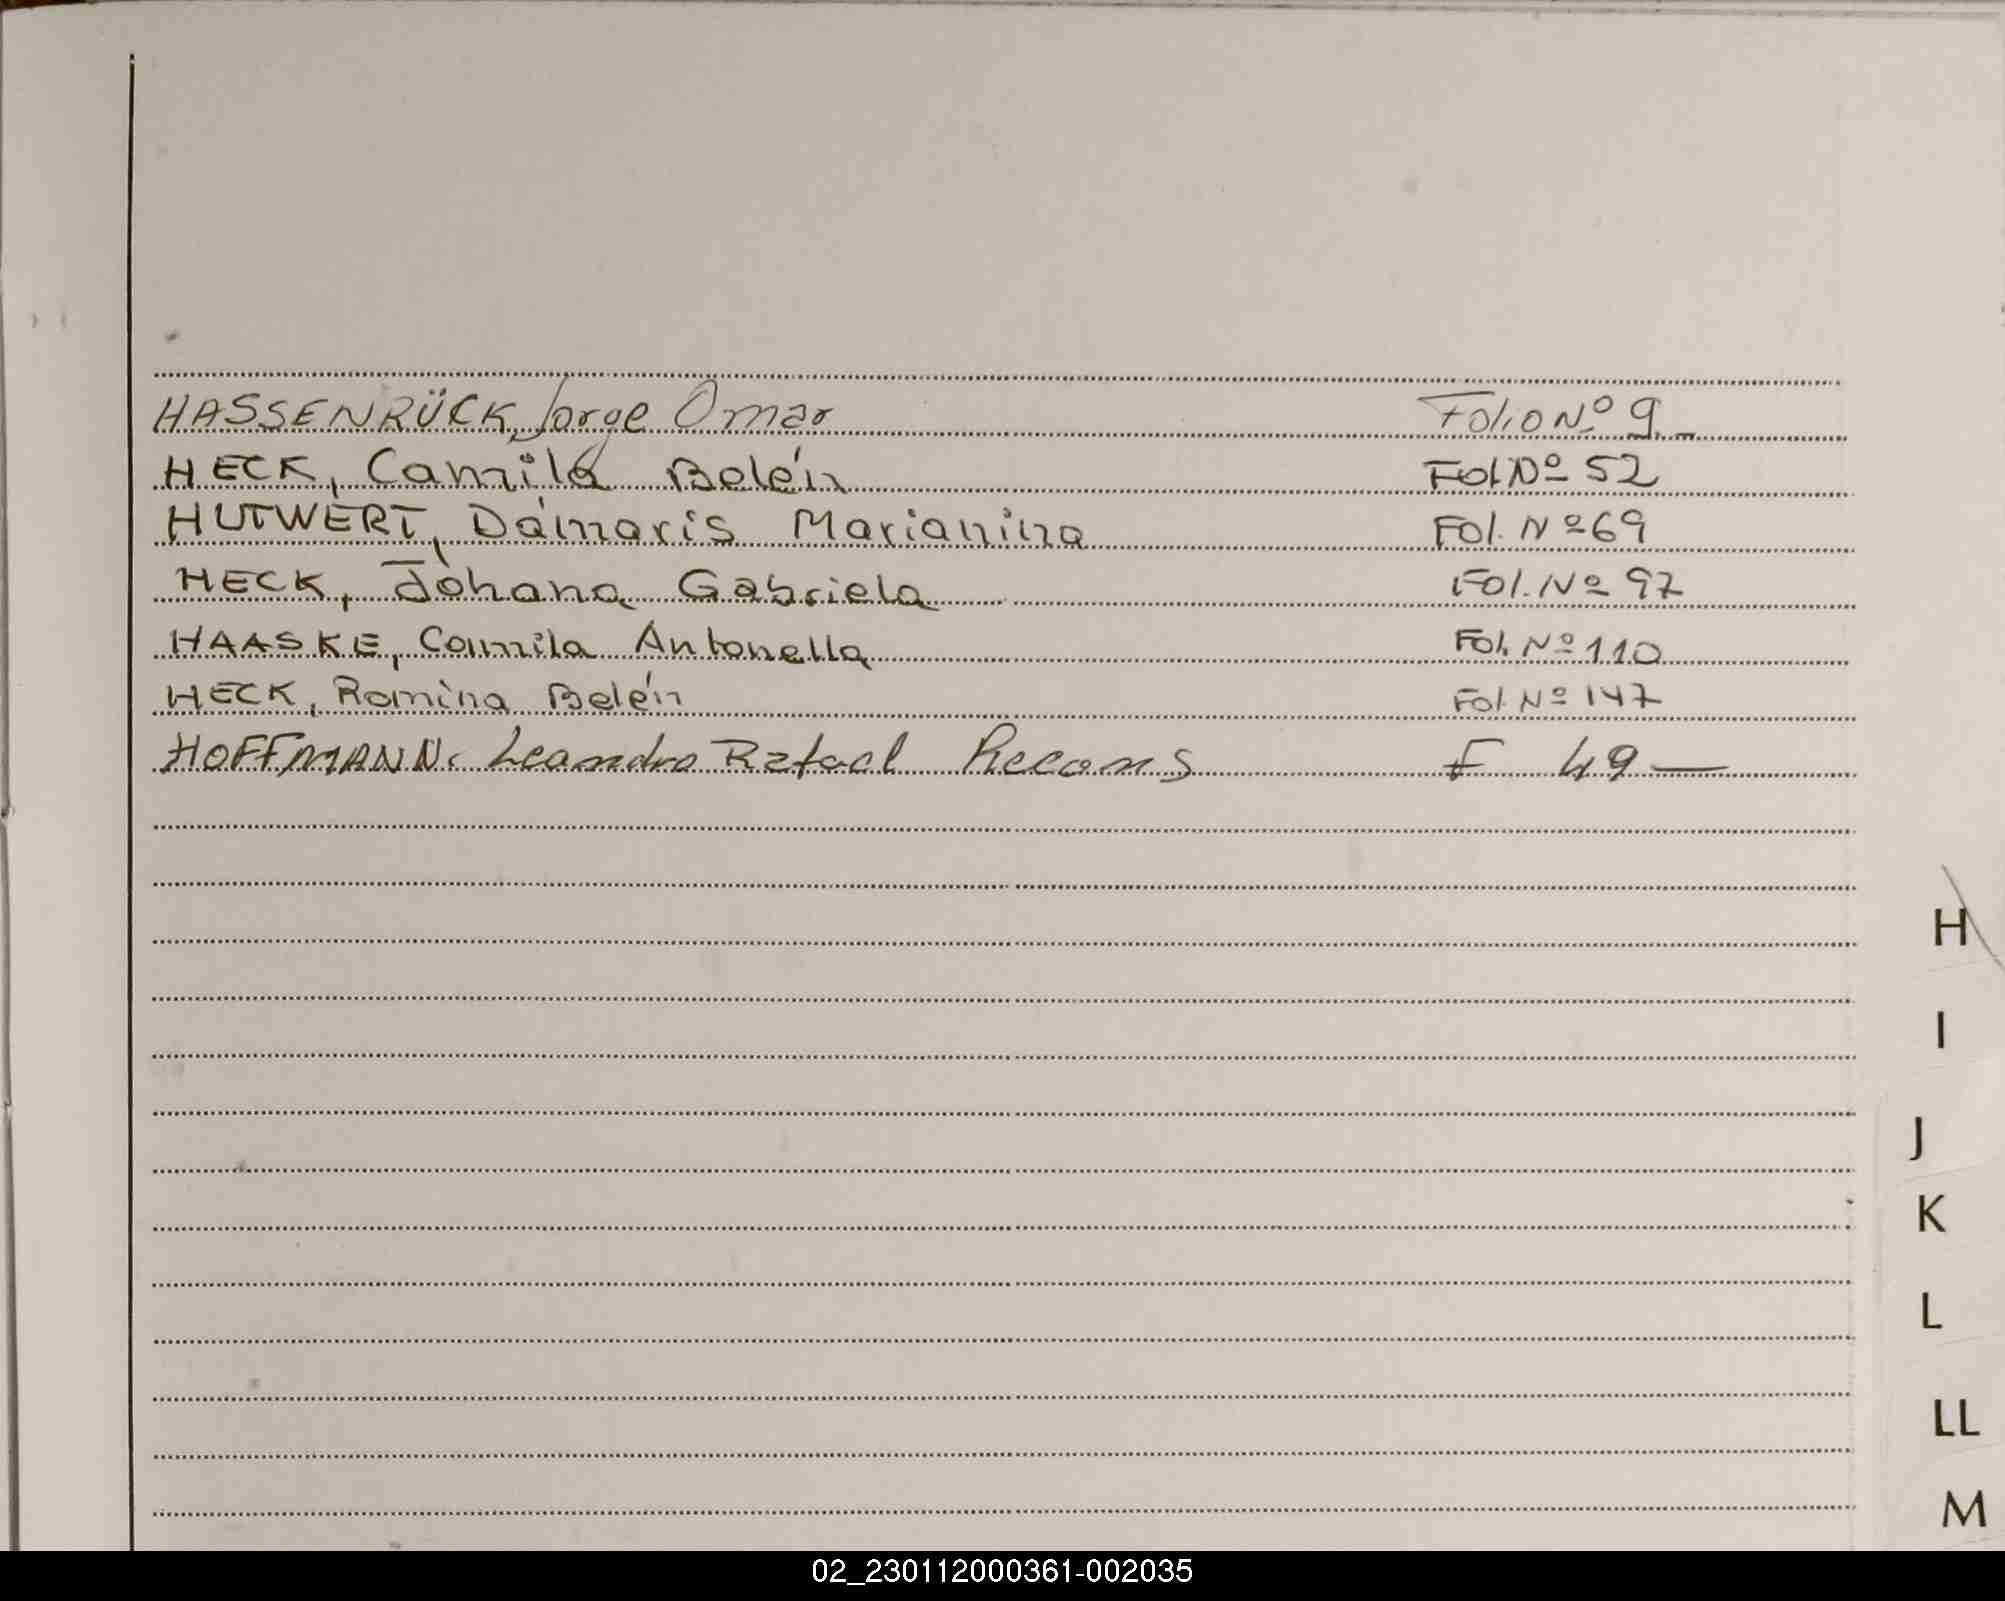 HASSENRÜCK, Jorge Omar Folio Nº 9.-
HECK, Camila Belén Fol Nº 52
HUTWERT, Dámaris Marianina Fol. Nº 69
HECK, Johana Gabriela Fol. Nº 97
HAASKE, Camila Antonella Fol. Nº 110
HECK, Romina Belén Fol Nº 147
HOFFMANN. Leandro Rafael Recons F 49 —
H
I
J
K
L
LL
M
02_230112000361-002035